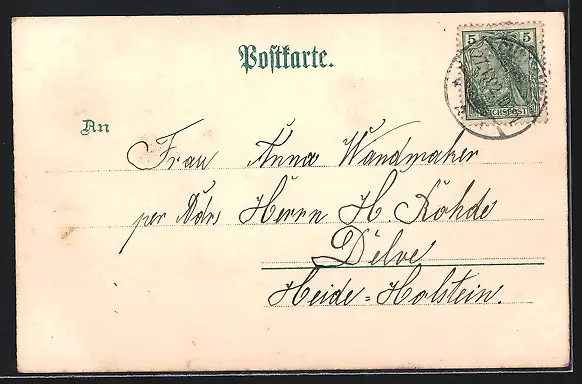 Postkarte.
5 5
REICHSPOST
An
Frau Anna Wandmaker
per Adr Herrn H. Rohde
Delve
Heide=Holstein.